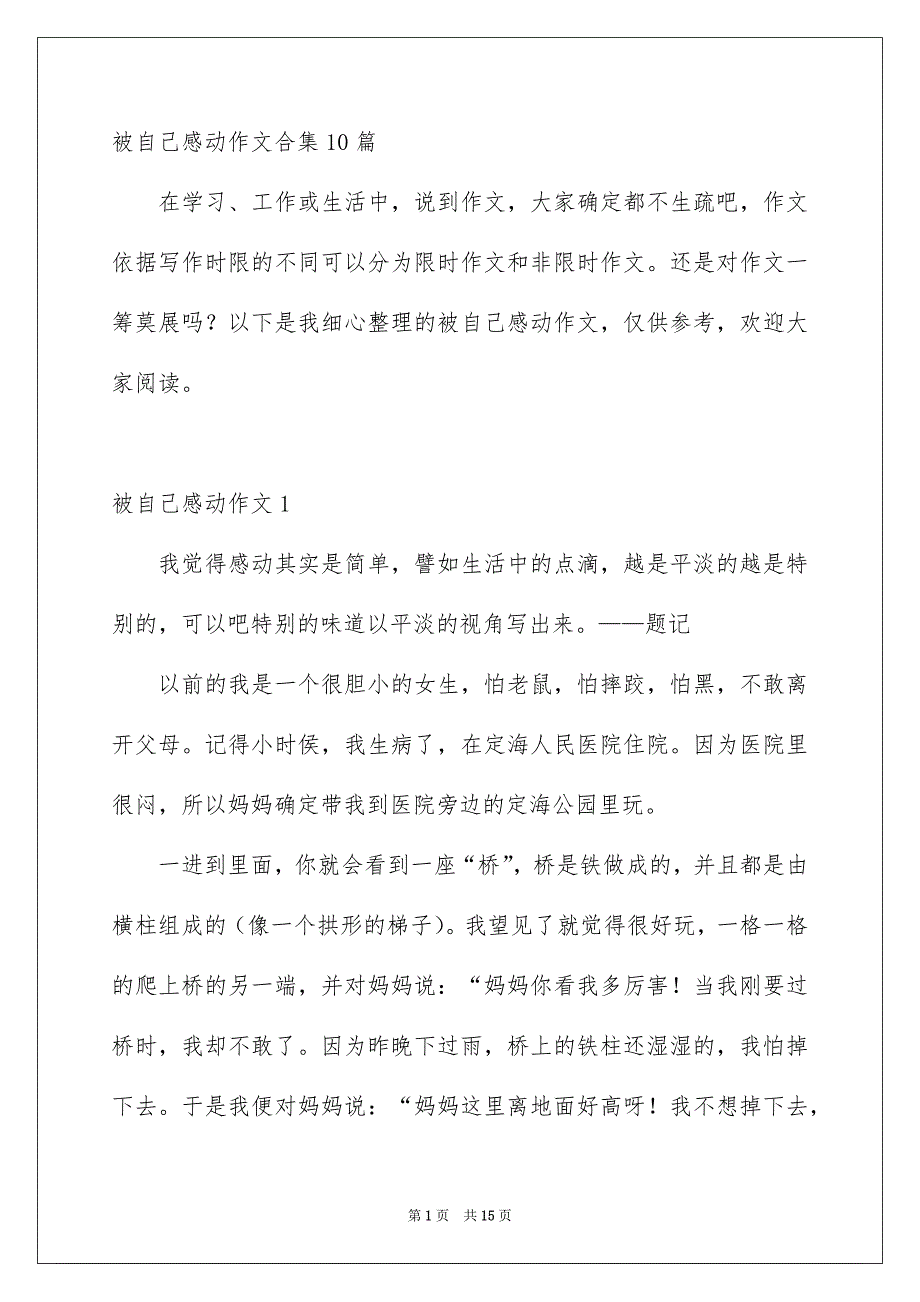 被自己感动作文合集 10 篇
在学习、工作或生活中，说到作文，大家确定都不生疏吧，作文
依据写作时限的不同可以分为限时作文和非限时作文。还是对作文一
筹莫展吗？以下是我细心整理的被自己感动作文，仅供参考，欢迎大
家阅读。
被自己感动作文 1
我觉得感动其实是简单，譬如生活中的点滴，越是平淡的越是特
别的，可以吧特别的味道以平淡的视角写出来。——题记
以前的我是一个很胆小的女生，怕老鼠，怕摔跤，怕黑，不敢离
开父母。记得小时侯，我生病了，在定海人民医院住院。因为医院里
很闷，所以妈妈确定带我到医院旁边的定海公园里玩。
一进到里面，你就会看到一座“桥”，桥是铁做成的，并且都是由
横柱组成的（像一个拱形的梯子）。我望见了就觉得很好玩，一格一格
的爬上桥的另一端，并对妈妈说：“妈妈你看我多厉害！当我刚要过
桥时，我却不敢了。因为昨晚下过雨，桥上的铁柱还湿湿的，我怕掉
下去。于是我便对妈妈说：“妈妈这里离地面好高呀！我不想掉下去，
第 1 页 共 15 页